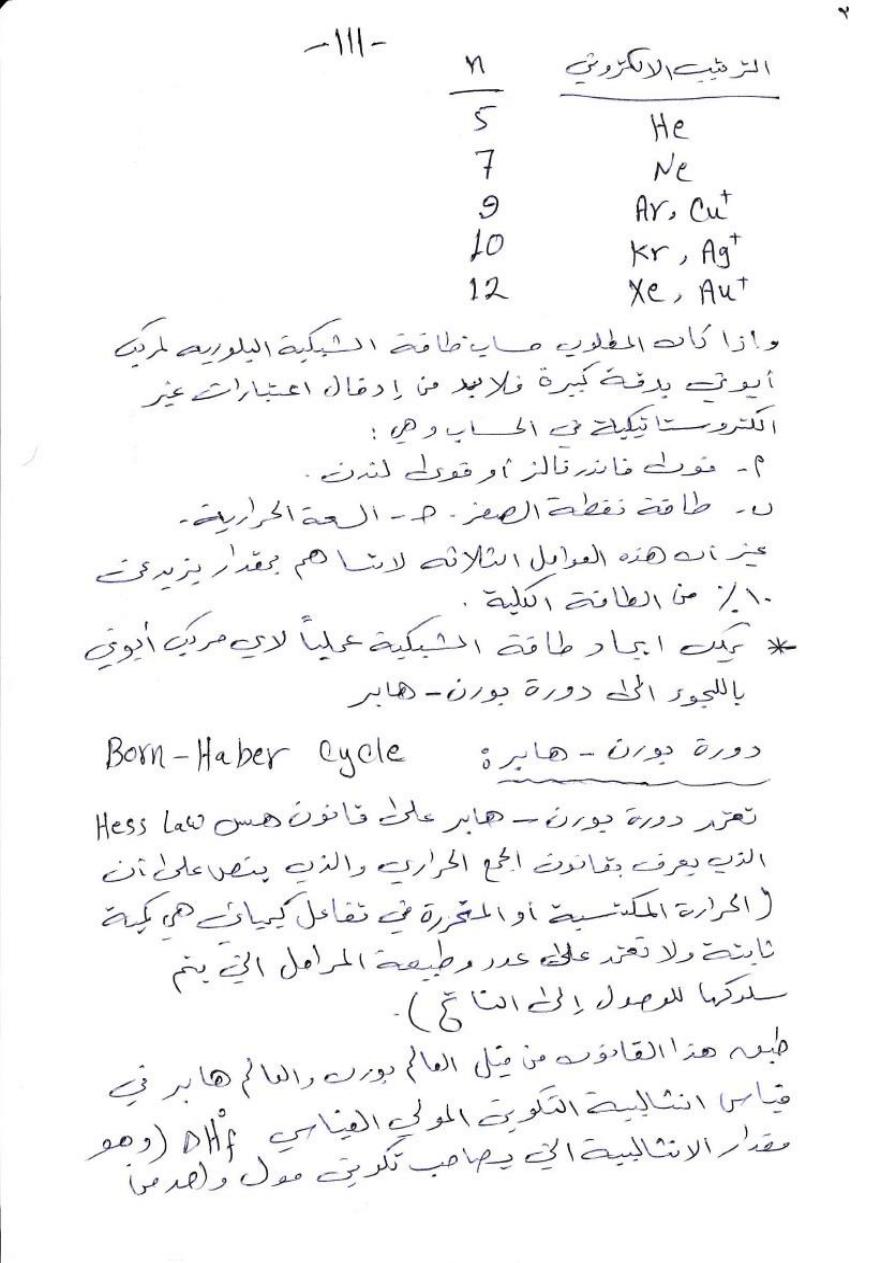 ٢
-111-
الترتيب الالكتروني n
He 5
Ne 7
Ar, Cu⁺ 9
Kr, Ag⁺ 10
Xe, Au⁺ 12
واذا كان المطلوب حساب طاقة الشبكية البلوريه لمركب
أيوني بدقة كبيرة فلابد من إدخال اعتبارات غير
الكتروستاتيكية في الحساب وهي :
م- قوى فاندرفالز أو قوى لندن .
ن- طاقة نقطة الصفر . ح- السعة الحرارية .
غير أن هذه العوامل الثلاثه لاتساهم بمقدار يزيد عن
١٠٪ من الطاقة الكلية .
* يمكن ايجاد طاقة الشبكية عملياً لاي مركب أيوني
باللجوء الى دورة بورن - هابر
دورة بورن - هابر : Born-Haber Cycle
تعتمد دورة بورن - هابر على قانون هس Hess Law
الذي يعرف بقانون الجمع الحراري والذي ينص على أن
(الحرارة المكتسبة أو المتحررة في تفاعل كيميائي هي كمية
ثابتة ولا تعتمد على عدد وطبيعة المراحل التي يتم
سلوكها للوصول إلى الناتج ) .
طبق هذا القانون من قبل العالم بورن والعالم هابر في
قياس انثالبية التكوين المولي القياسي DH°f (وهو
مقدار الانثالبية التي يصاحب تكوين مول واحد من